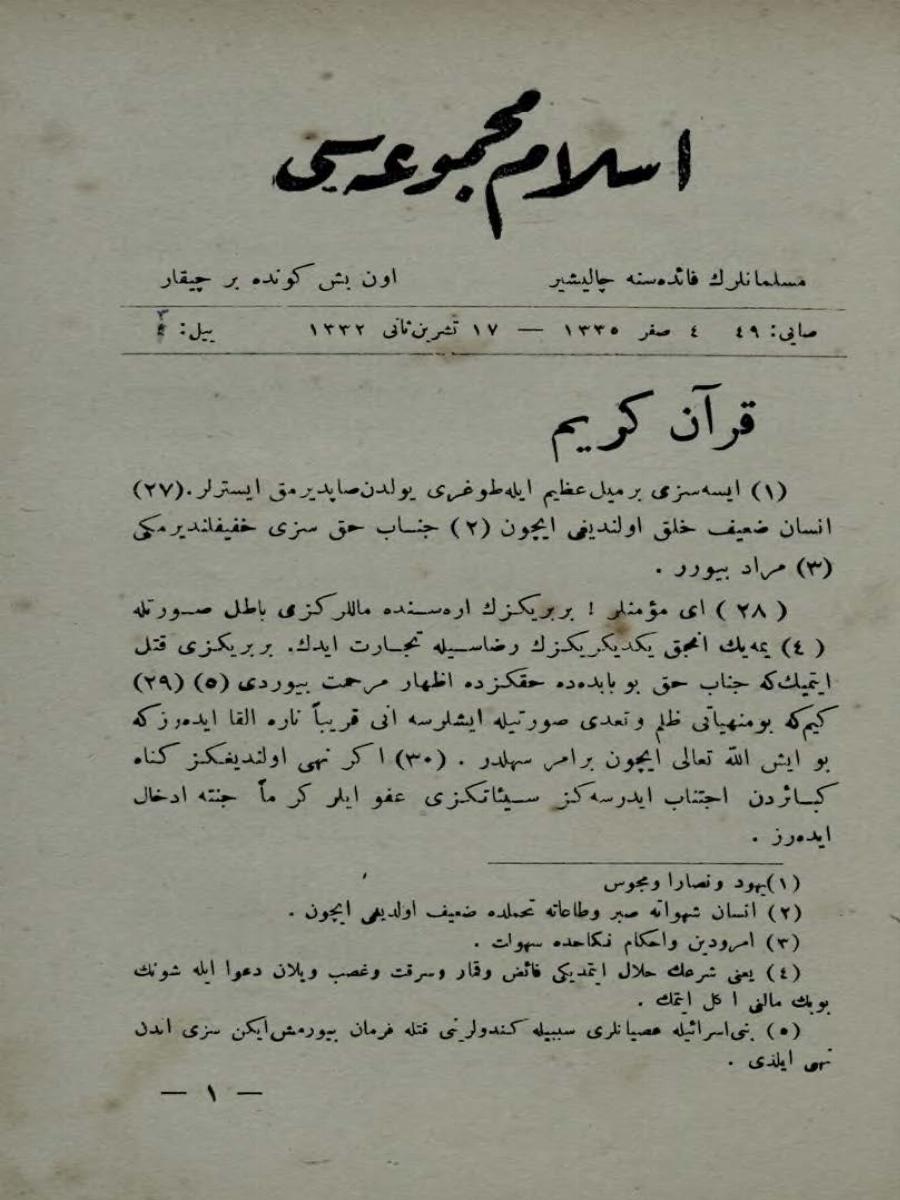 اسلام مجموعه‌سی
مسلمانلرك فائده‌سنه چالیشیر اون بش كونده بر چیقار
صایی: ٤٩ ٤ صفر ١٣٣٥ — ١٧ تشرین ثانی ١٣٣٢ ییل: ٣
قرآن كریم
(١) ایسه سزی بر میل عظیم ایله طوغری یولدن صاپدیرمق ایسترلر. (٢٧)
انسان ضعیف خلق اولندیغی ایچون (٢) جنـاب حق سزی خفیفلندیرمكی
(٣) مراد بیورر .
(٢٨) ای مؤمنلر ! بربریكزك اره‌سـنده ماللركزی باطل صـورتله
(٤) یمه‌یك انجق یكدیكریكزك رضاسـیله تجـارت ایدك. بربریكزی قتل
ایتمیك كه جناب حق بو بابده‌ده حقكزده اظهار مرحمت بیوردی (٥) (٢٩)
كیم كه بو منهیاتی ظلم و تعدی صورتیله ایشلرسه انی قریباً ناره القا ایده‌رز كه
بو ایش الله تعالی ایچون بر امر سهلدر . (٣٠) اكر نهی اولندیغكز كناه
كبـائردن اجتناب ایدرسه‌كز سـیئاتكزی عفو ایلر كرماً جنته ادخال
ایده‌رز .
(١) یهود و نصارا و مجوس
(٢) انسان شهواته صبر وطاعاته تحملده ضعیف اولدیغی ایچون .
(٣) امرودین واحكام نكاحده سهولت .
(٤) یعنی شرعك حلال ایتمدیكی فائض وقمار وسرقت وغصب ویلان دعوا ایله شونك
بونك مالنی اكل ایتمك .
(٥) بنی اسرائیله عصیانلری سببیله كندولرینی قتله فرمان بیورمش ایكن سزی اندن
نهی ایلدی .
— ١ —